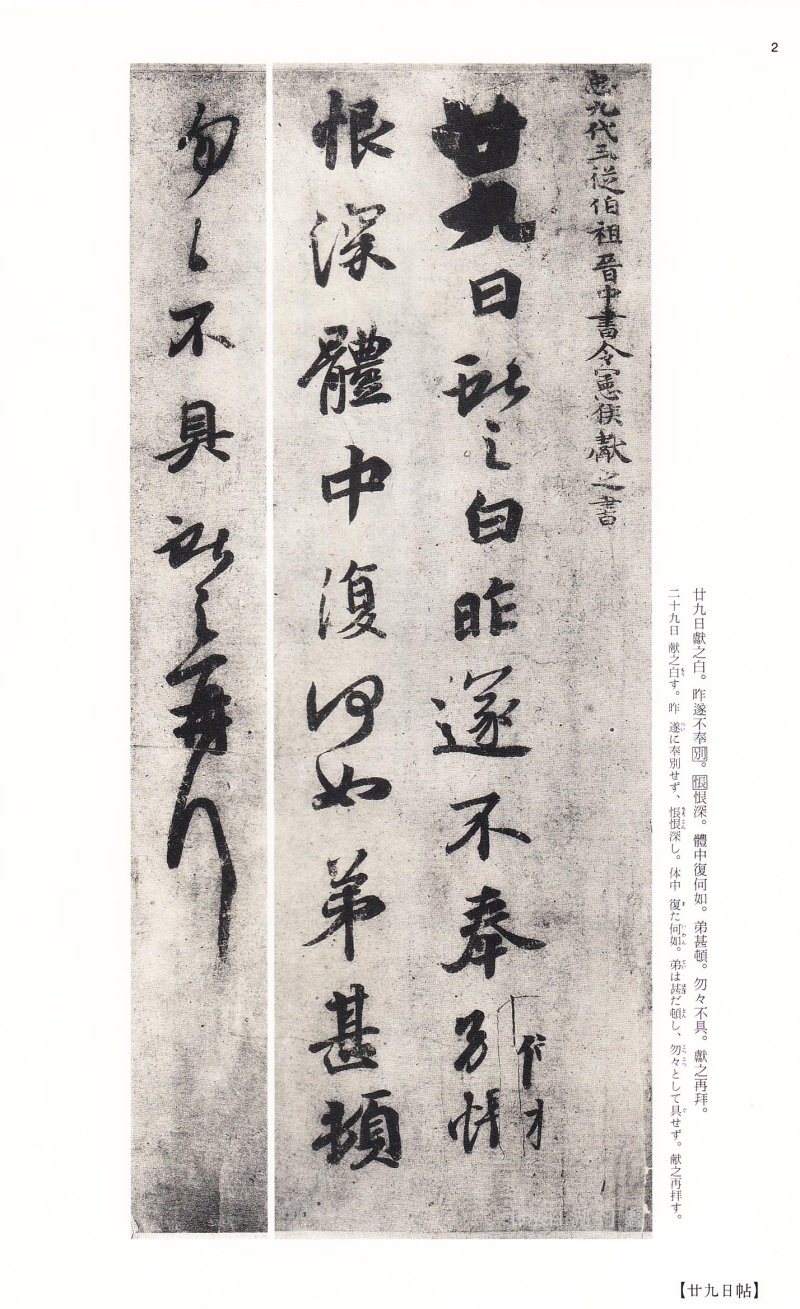 2
廿九日獻之白。昨遂不奉別。悵恨深。體中復何如。弟甚頓。勿々不具。獻之再拜。
二十九日 献之白す。昨 遂に奉別せず、悵恨深し。体中 復た何如。弟は甚だ頓し、勿々として具せず。献之再拝す。
臣九代三從伯祖晉中書令憲侯獻之書
廿九日獻之白昨遂不奉別悵
恨深體中復何如弟甚頓
勿々不具獻之再拜
【廿九日帖】